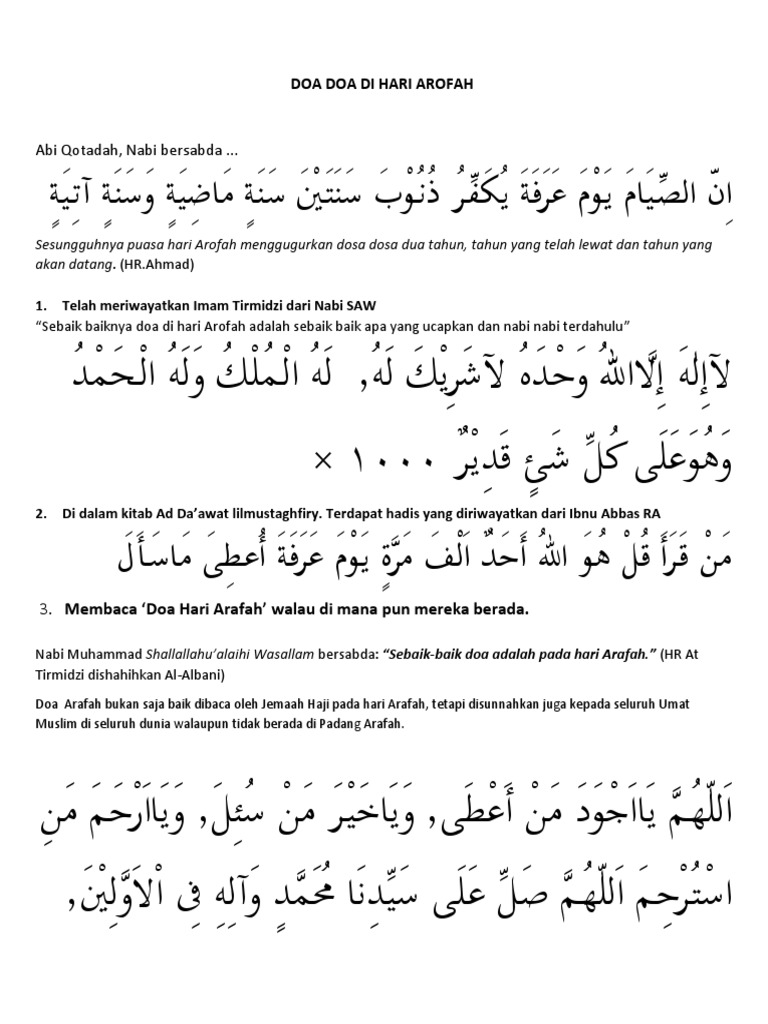 DOA DOA DI HARI AROFAH
Abi Qotadah, Nabi bersabda ...
اِنّ الصِّيَامَ يَوْمَ عَرَفَةَ يُكَفِّرُ ذُنُوْبَ سَنَتَيْنَ سَنَةٍ مَاضِيَةٍ وَسَنَةٍ آتِيَةٍ
Sesungguhnya puasa hari Arofah menggugurkan dosa dosa dua tahun, tahun yang telah lewat dan tahun yang
akan datang. (HR.Ahmad)
1. Telah meriwayatkan Imam Tirmidzi dari Nabi SAW
“Sebaik baiknya doa di hari Arofah adalah sebaik baik apa yang ucapkan dan nabi nabi terdahulu”
لآإِلهَ إِلَّااللهُ وَحْدَهُ لآشَرِيْكَ لَهُ, لَهُ الْمُلْكُ وَلَهُ الْحَمْدُ
وَهُوَعَلَى كُلِّ شَئٍ قَدِيْرٌ ١٠٠٠ ×
2. Di dalam kitab Ad Da’awat lilmustaghfiry. Terdapat hadis yang diriwayatkan dari Ibnu Abbas RA
مَنْ قَرَأَ قُلْ هُوَ اللهُ أَحَدٌ اَلْفَ مَرَّةٍ يَوْمَ عَرَفَةَ أُعطِىَ مَاسَأَلَ
3. Membaca ‘Doa Hari Arafah’ walau di mana pun mereka berada.
Nabi Muhammad Shallallahu’alaihi Wasallam bersabda: “Sebaik-baik doa adalah pada hari Arafah.” (HR At
Tirmidzi dishahihkan Al-Albani)
Doa Arafah bukan saja baik dibaca oleh Jemaah Haji pada hari Arafah, tetapi disunnahkan juga kepada seluruh Umat
Muslim di seluruh dunia walaupun tidak berada di Padang Arafah.
اَللّهُمَّ يَااَجْوَدَ مَنْ أَعْطَى, وَيَاخَيْرَ مَنْ سُئِلَ, وَيَااَرْحَمَ مَنِ
اسْتُرْحِمَ اَللّهُمَّ صَلِّ عَلَى سَيِّدِنَا مُحَمَّدٍ وَآلِهِ فِى اْلاَوَّلِيْنَ,